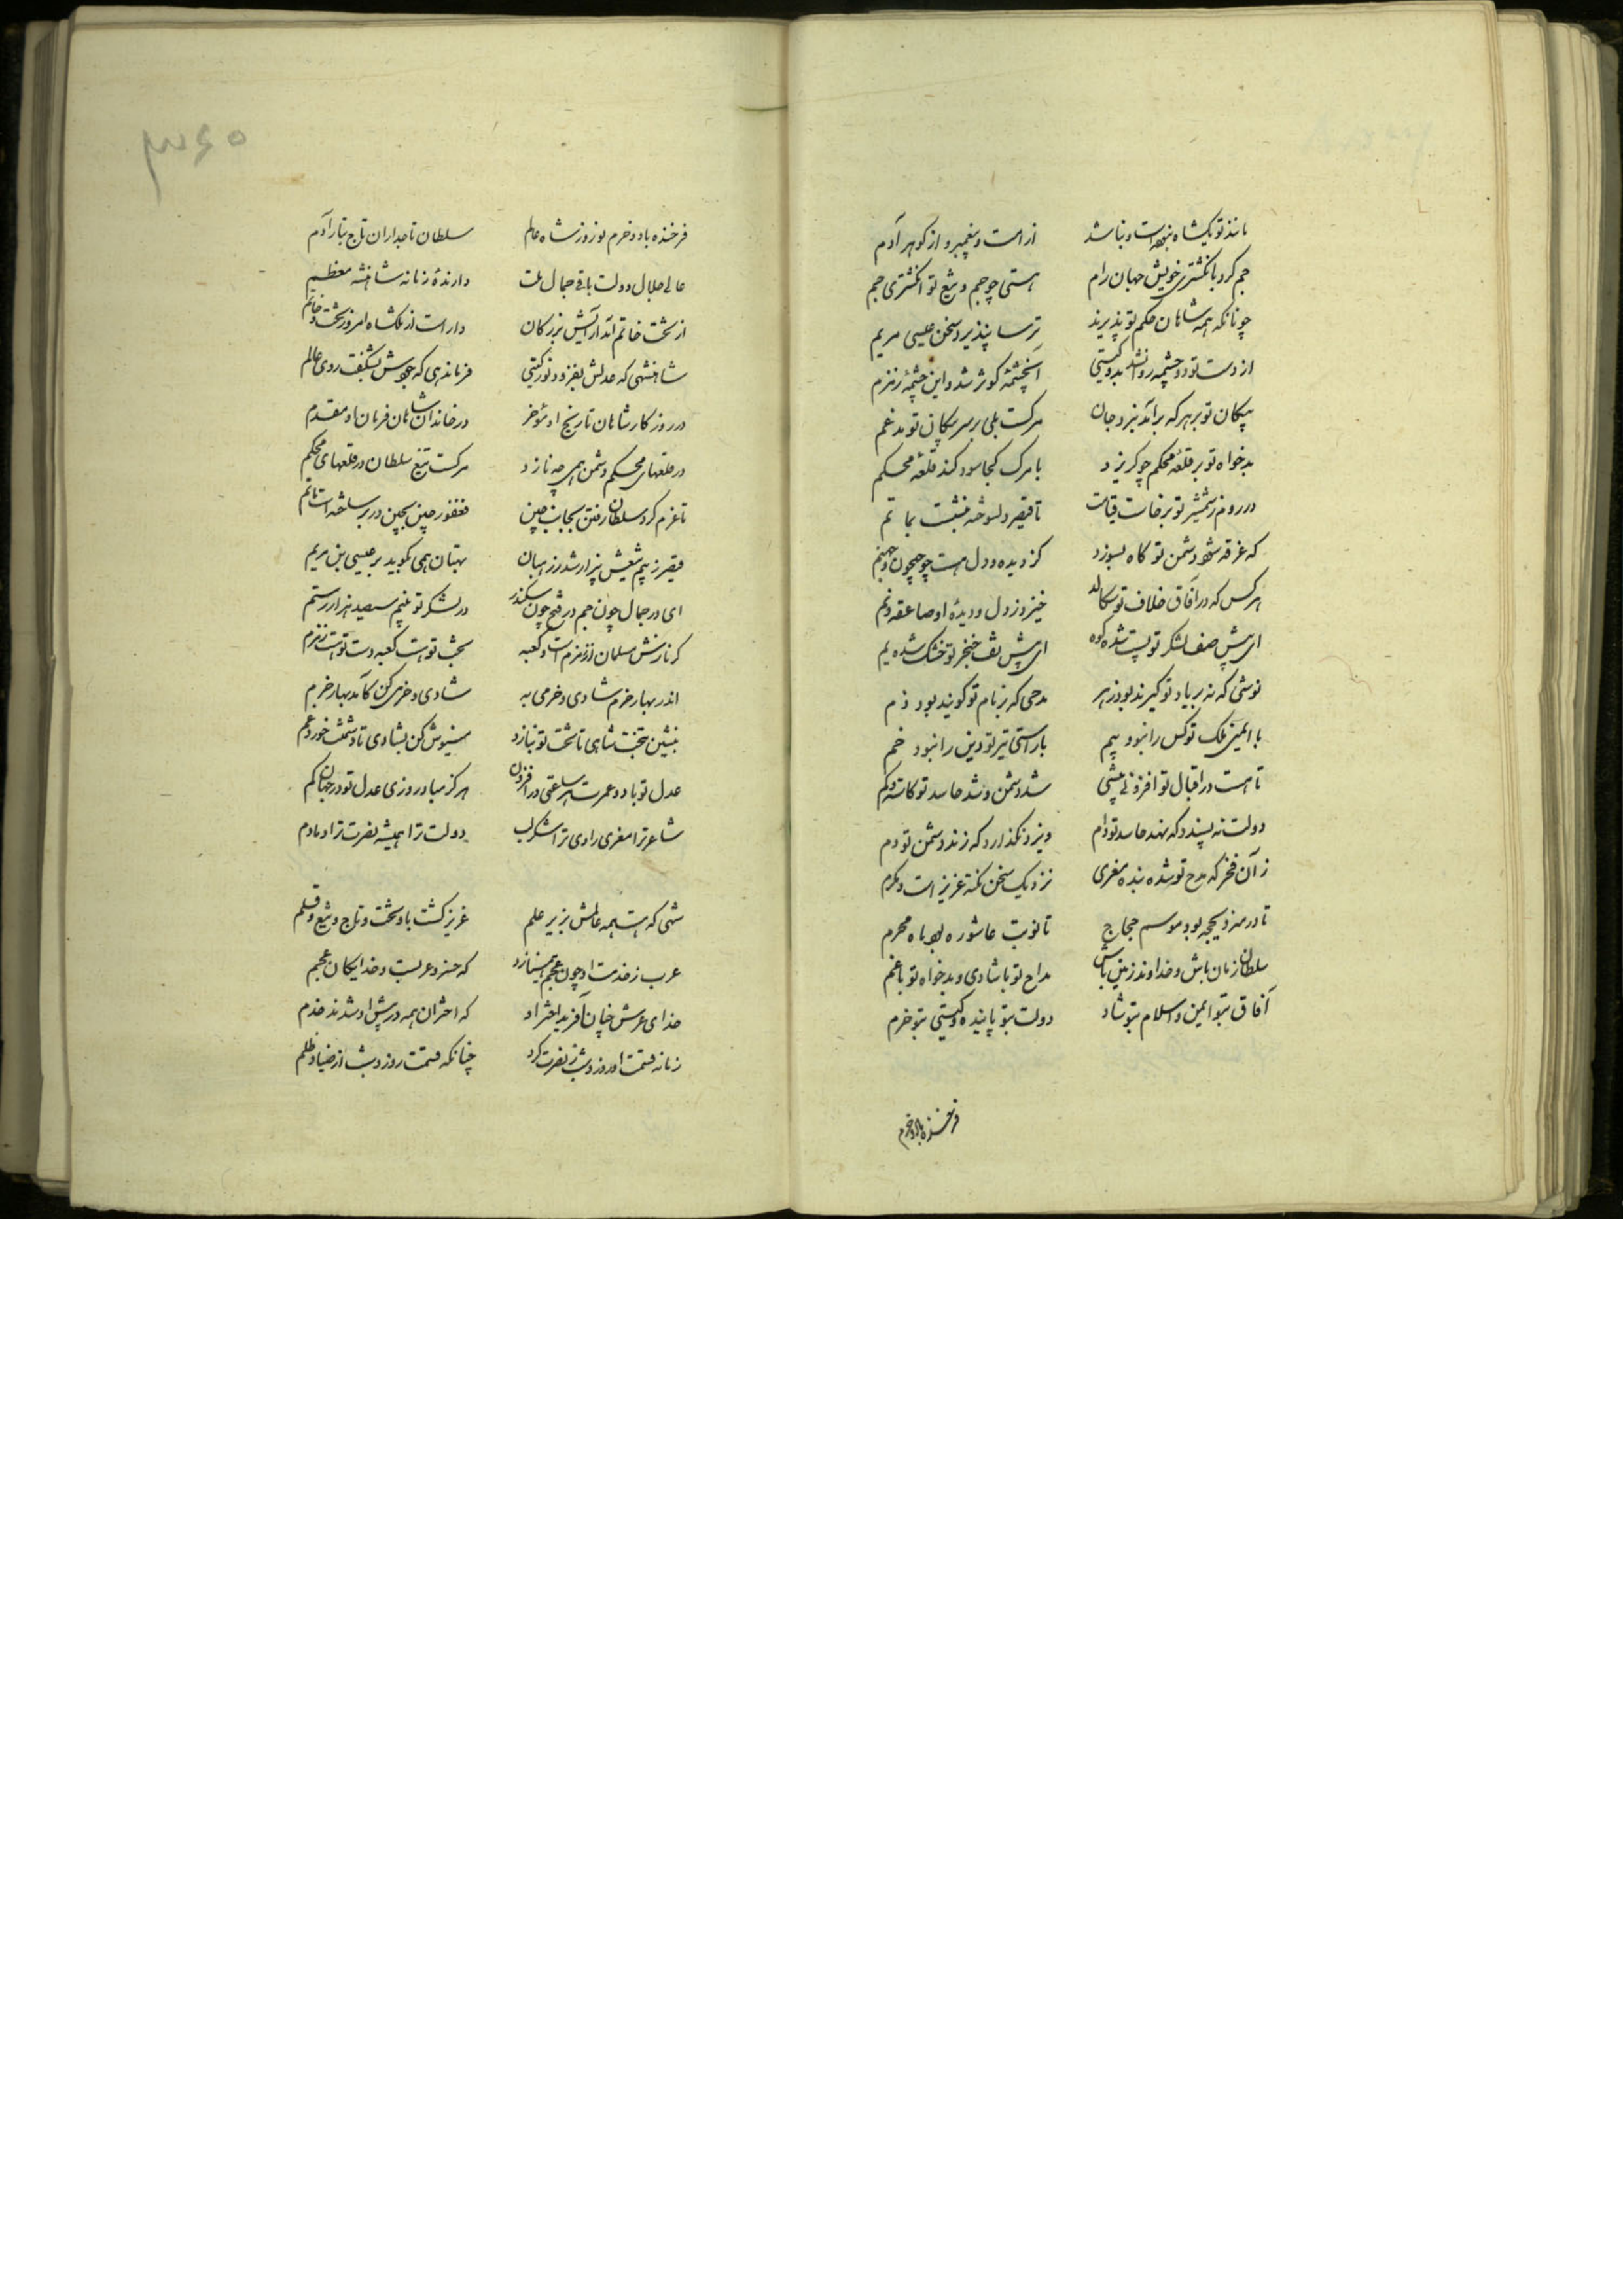 مانند تو یکشاه نبوده است و نباشد از امت و پیغمبر و از گوهر آدم
جم کرد بانگشتری خویش جهان رام هستی چو جم و تیغ تو انگشتری جم
چونانکه همه شاهان حکم تو پذیرند ترسا پذیرد سخن عیسی مریم
از دست تو دو چشمه روانشد بدو گیتی آنچشمهٔ کوثر شد و این چشمهٔ زمزم
پیکان تو بر هر که برآید ببرد جان مرگست بلی بر سر پیکان تو مدغم
بدخواه تو بر قلعهٔ محکم چو گریزد با مرگ کجا سود کند قلعهٔ محکم
در روم ز شمشیر تو برخاست قیامت تا قیصر دلسوخته بنشست بماتم
که غرقه شود دشمن تو گاه بسوزد کز دیده و دل هست چو جیحون و جهنم
هر کس که در آفاق خلاف تو سگالد خیزد ز دل و دیدهٔ او صاعقه و نم
ای پیش صف لشکر تو پست شده کوه ای پیش تف خنجر تو خشک شده یم
نوشی که نه بر یاد تو گیرند بود زهر مدحی که نه بر نام تو گویند بود ذم
با ایمنی ملک تو کس را نبود بیم با راستی تیر تو دین را نبود خم
تا هست در اقبال تو افزونی و بیشی شد دشمن و شد حاسد تو کاسته و کم
دولت نه پسندد که نهد حاسد تو دام ویزد نگذارد که زند دشمن تو دم
ز آن فخر که مدح تو شده بنده معزی نزدیک سخن گفته عزیز است و مکرم
تا در مه ذیحجه بود موسم حجاج تا نوبت عاشوره بود ماه محرم
سلطان زمان باش و خداوند زمین باش مداح تو با شادی و بدخواه تو با غم
آفاق بتو ایمن و اسلام بتو شاد دولت بتو پاینده و گیتی بتو خرم
فرخنده باد و خرم
۳۶۵
فرخنده باد و خرم نوروز شاه عالم سلطان تاجداران تاج تبار آدم
عالی جلال دولت باقی جمال ملت دارندهٔ زمانه شاهنشه معظم
از تخت خاتم آمد آرایش بزرگان دار است از ملکشاه امروز تخت و خاتم
شاهنشهی که عدلش بفزود نور گیتی فرماندهی که جودش بشکفت روی عالم
در روزگار شاهان تاریخ او مؤخر در خاندان شاهان فرمان او مقدم
در قلعهای محکم دشمن همی چه نازد مرگست تیغ سلطان در قلعهای محکم
تا عزم کرد سلطان رفتن بجانب چین فغفور چین بچین در بر ساخته است ماتم
قیصر ز بیم تیغش بیزار شد ز رهبان بهتان همی نگوید بر عیسی بن مریم
ای در جمال چون جم در فتح چون سکندر در لشکر تو بینم سیصد هزار رستم
گر نازش مسلمان از زمزم است و کعبه تخت تو هست کعبه دست تو هست زمزم
اندر بهار خرم شادی و خرمی به شادی و خرمی کن کآمد بهار خرم
بنشین بتخت شاهی تا تخت تو بنازد می نوش کن بشادی تا دشمنت خورد غم
عدل تو باد و عمرت هر ساعتی در افزون هرگز مباد روزی عدل تو در جهان کم
شاعر ترا معزی رادی ترا شکر لب دولت ترا همیشه نصرت ترا دمادم
شهی که هست همه عالمش بزیر علم عزیز گشت باو تخت و تاج و تیغ و قلم
عرب ز خدمت او چون عجم همینازد که خسرو عربست و خدایگان عجم
خدای عرش چنان آفرید اختر او که اختران همه در پیش او شدند خدم
زمانه قسمت او روز و شب ز نصرت کرد چنانکه قسمت روز و شب از ضیا و ظلم